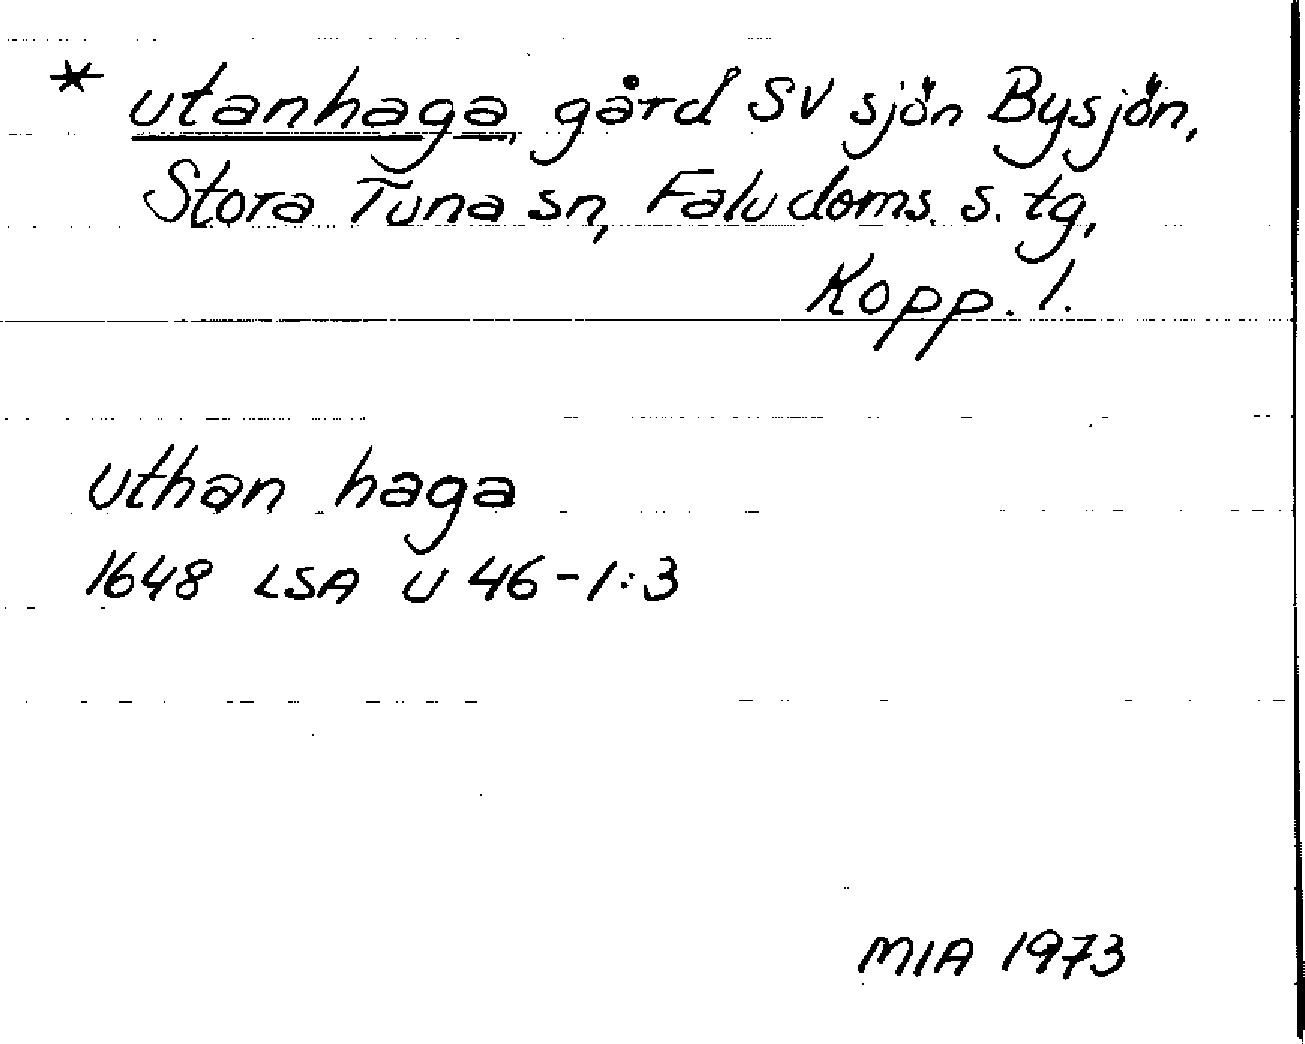 * Utanhaga, gård SV sjön Bysjön,
Stora Tuna sn, Falu doms. s. tg,
Kopp. l.
Uthan haga
1648 LSA U 46-1:3
MIA 1973